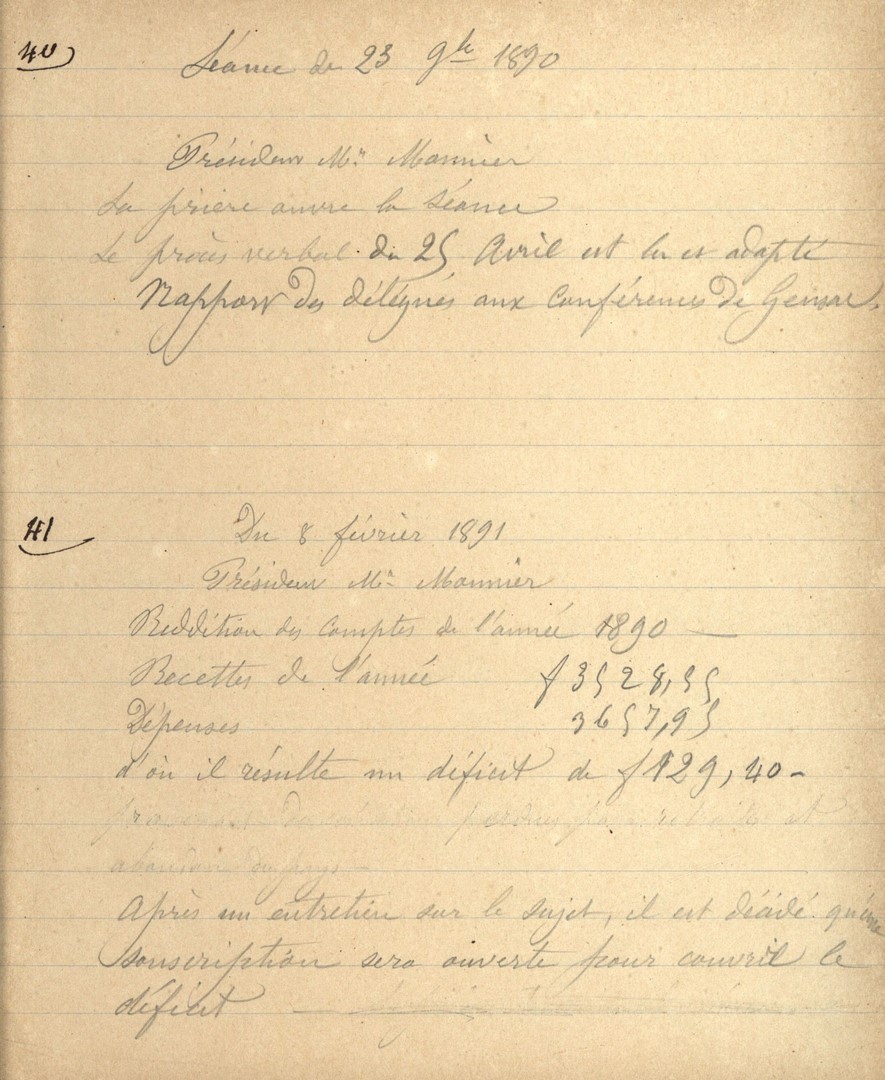 40
Séance du 23 9bre 1890
Président Mr. Monnier
La prière ouvre la séance
Le procès verbal du 25 Avril est lu et adopté
Rapport des délégués aux conférences de Gensac.
41
Du 8 février 1891
Président Mr. Monnier
Reddition des comptes de l'année 1890 —
Recettes de l'année f 3528,55
Dépenses 3657,95
d'où il résulte un déficit de f 129,40 -
perdues et
abandon du pays —
Après un entretien sur le sujet, il est décidé qu'une
souscription sera ouverte pour couvrir le
déficit —